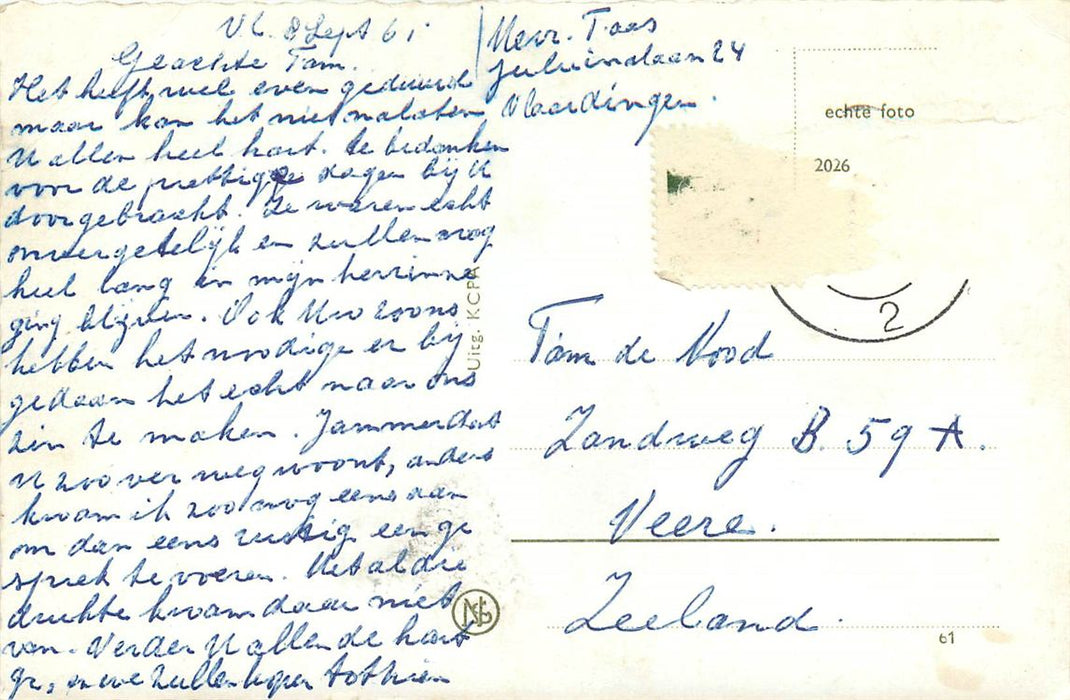 Vl. 8 Sept 61
Geachte Fam.
Het heeft wel even geduurd
maar kan het niet nalaten
U allen heel hart. te bedanken
voor de prettige dagen bij U
doorgebracht. Ze waren echt
onvergetelijk en zullen nog
heel lang in mijn herinne
ging blijven. Ook Uw zoons
hebben het nodige er bij
gedaan het echt naar ons
zin te maken. Jammer dat
U zoo ver weg woont, anders
kwam ik zoo nog eens aan
om dan eens rustig een ge
sprek te voeren. Met al die
drukte kwam daar niet
van. Verder U allen de hart
gr, en we zullen hopen tot zien
Mevr. T. aas
Julianalaan 24
Vlaardingen.
echte foto
2026
2
Uitg. KCPA
Fam de Nood
Zandweg B. 59 A.
Veere.
Zeeland.
61